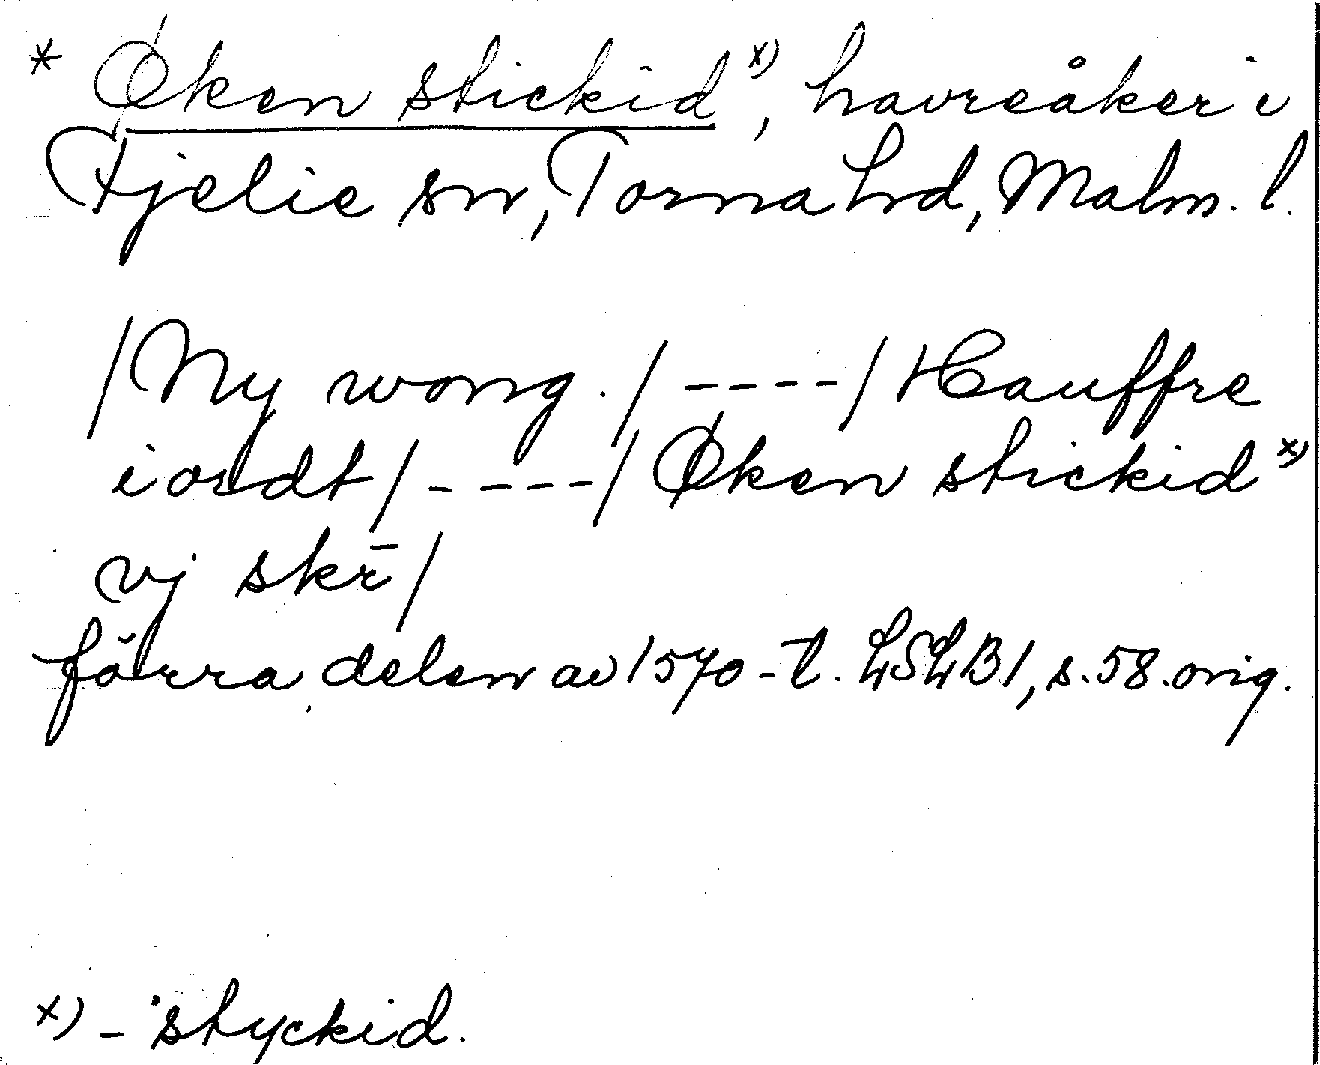 * Øken stickid x), havreåker i
Fjelie sn, Torna hd, Malm. l.
/Ny wong./ ----/ Hauffre
iordt/ ----/ Øken stickid x)
vj skr̄/
förra delen av 1570-t. LSLB1, s. 58. orig.
x) - styckid.